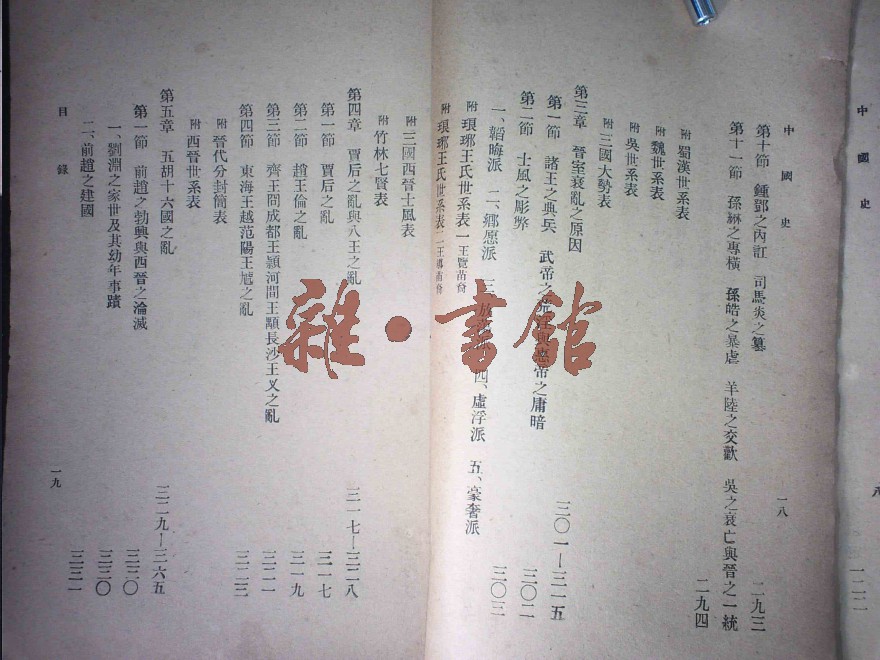 中國史
一八
第十節 鍾鄧之內訌 司馬炎之篡 二九三
第十一節 孫綝之專橫 孫皓之暴虐 羊陸之交歡 吳之衰亡與晉之一統 二九四
附 蜀漢世系表
附 魏世系表
附 吳世系表
附 三國大勢表
第三章 晉室衰亂之原因 三〇一—三一五
第一節 諸王之典兵 武帝之 帝之庸暗 三〇二
第二節 士風之彫弊 三〇三
一、韜晦派 二、鄉愿派 三、放 四、虛浮派 五、豪奢派
附 琅琊王氏世系表一王覽苗裔
附 琅琊王氏世系表二王導苗裔
附 三國西晉士風表
附 竹林七賢表
第四章 賈后之亂與八王之亂 三一七—三二八
第一節 賈后之亂 三一七
第二節 趙王倫之亂 三一九
第三節 齊王冏成都王穎河間王顒長沙王乂之亂 三二一
第四節 東海王越范陽王虓之亂 三二三
附 晉代分封簡表
附 西晉世系表
第五章 五胡十六國之亂 三二九—三六五
第一節 前趙之勃興與西晉之淪滅 三三〇
一、劉淵之家世及其幼年事蹟 三三〇
二、前趙之建國 三三一
目錄
一九
中國史
雜·書館